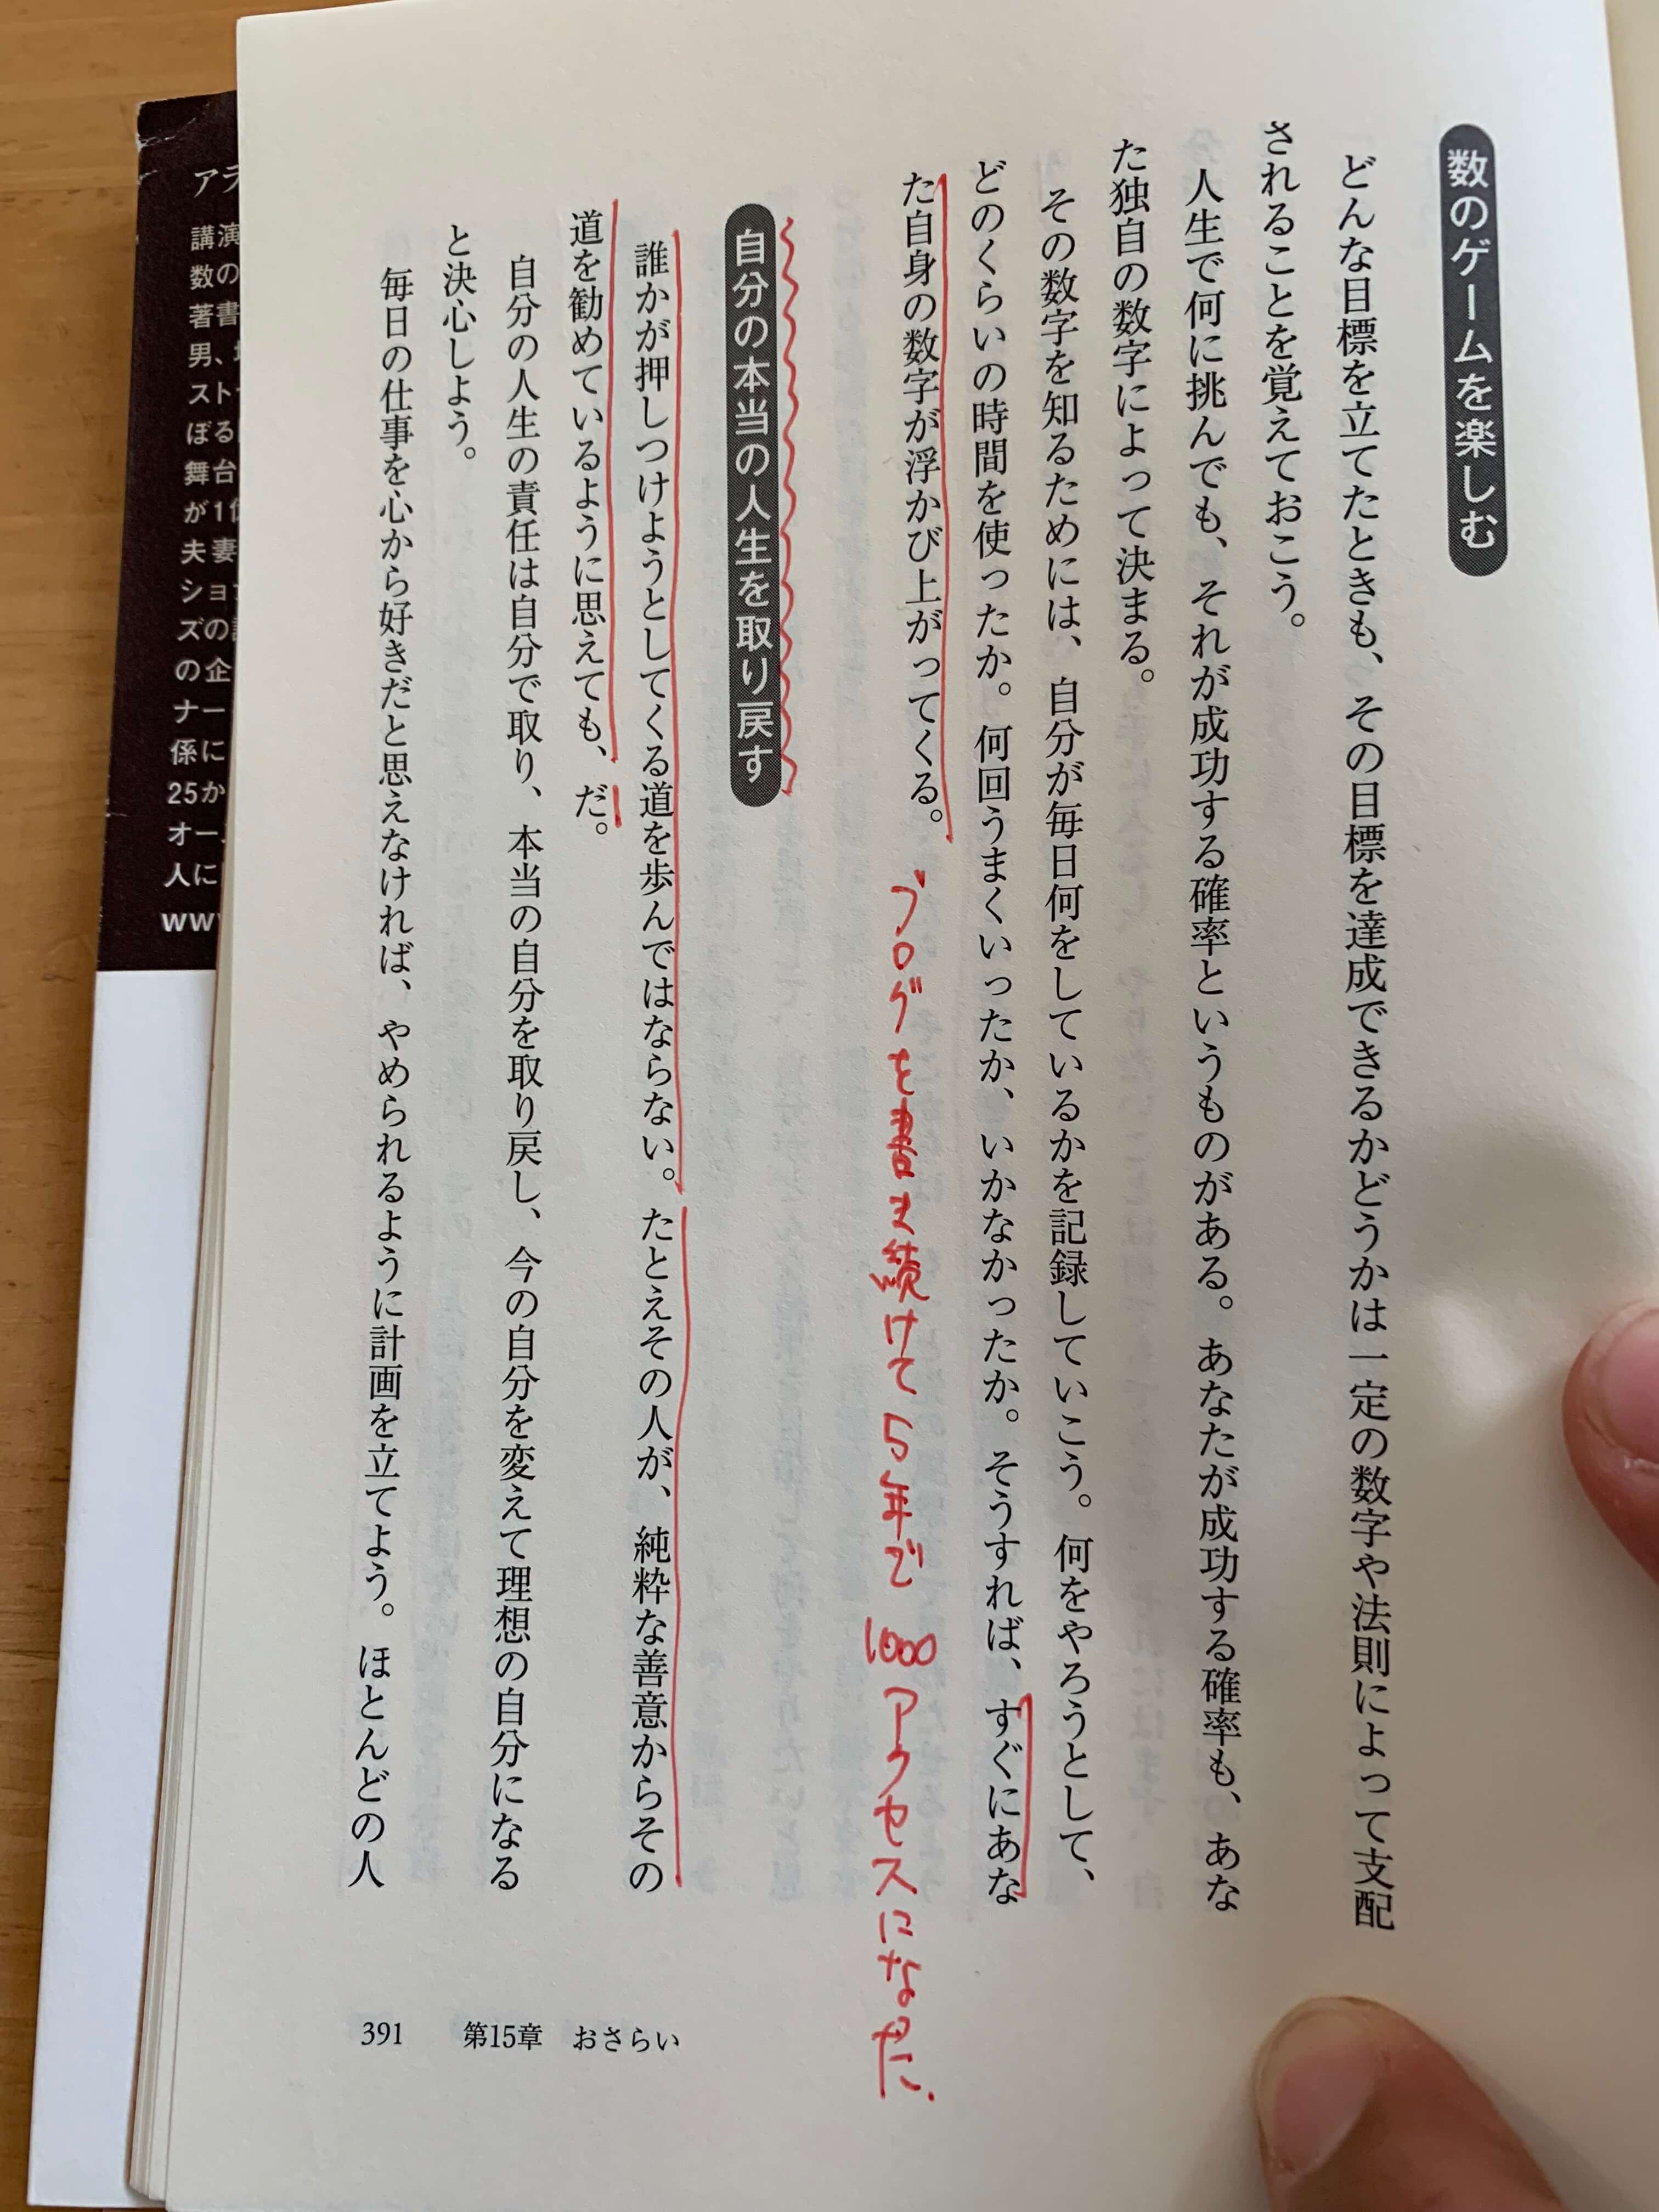 数のゲームを楽しむ
どんな目標を立てたときも、その目標を達成できるかどうかは一定の数字や法則によって支配
されることを覚えておこう。
人生で何に挑んでも、それが成功する確率というものがある。あなたが成功する確率も、あな
た独自の数字によって決まる。
その数字を知るためには、自分が毎日何をしているかを記録していこう。何をやろうとして、
どのくらいの時間を使ったか。何回うまくいったか、いかなかったか。そうすれば、すぐにあな
た自身の数字が浮かび上がってくる。
ブログを書き続けて5年で1000アクセスになった.
自分の本当の人生を取り戻す
誰かが押しつけようとしてくる道を歩んではならない。たとえその人が、純粋な善意からその
道を勧めているように思えても、だ。
自分の人生の責任は自分で取り、本当の自分を取り戻し、今の自分を変えて理想の自分になる
と決心しよう。
毎日の仕事を心から好きだと思えなければ、やめられるように計画を立てよう。ほとんどの人
391 第15章 おさらい
アラ
講演
数の
著書
男、
スト
ぼる
舞台
が1
夫妻
ショ
ズの
の企
ナー
係に
25か
オー
人に
ww